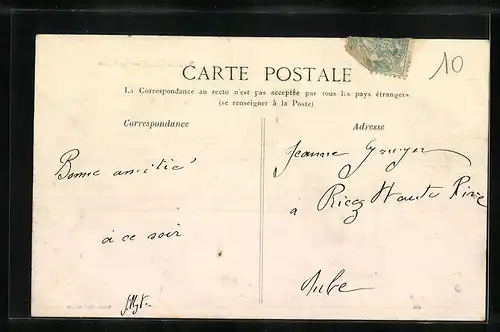 10
CARTE POSTALE
La Correspondance au recto n'est pas acceptée par tous les pays étrangers
(se renseigner à la Poste)
Correspondance
Adresse
Bonne amitié
à ce soir
Jeanne
à Ricey Haute Rive
Aube